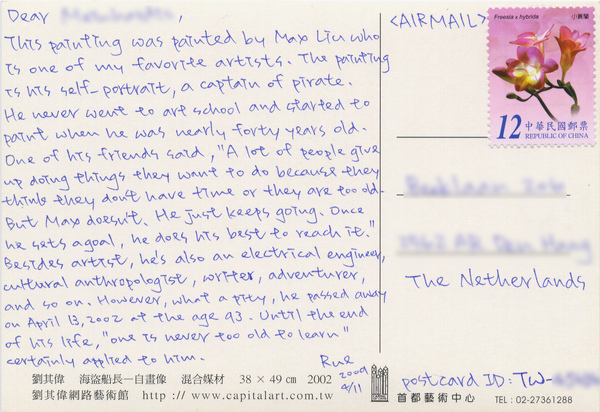 Dear
This painting was painted by Max Liu who
is one of my favorite artists. The painting
is his self-portrait, a captain of pirate.
He never went to art school and started to
paint when he was nearly forty years old.
One of his friends said, "A lot of people give
up doing things they want to do because they
think they don't have time or they are too old.
But Max doesn't. He just keeps going. Once
he sets a goal, he does his best to reach it."
Besides artist, he's also an electrical engineer,
cultural anthropologist, writer, adventurer,
and so on. However, what a pity, he passed away
on April 13, 2002 at the age 93. Until the end
of his life, "one is never too old to learn"
certainly applied to him.
Rue
2009
4/11
劉其偉 海盜船長—自畫像 混合媒材 38 × 49 cm 2002
劉其偉網路藝術館 http://www.capitalart.com.tw
<AIRMAIL>
Freesia x hybrida 小蒼蘭
12 中華民國郵票
REPUBLIC OF CHINA
The Netherlands
postcard ID: TW-
首都藝術中心 TEL : 02-27361288